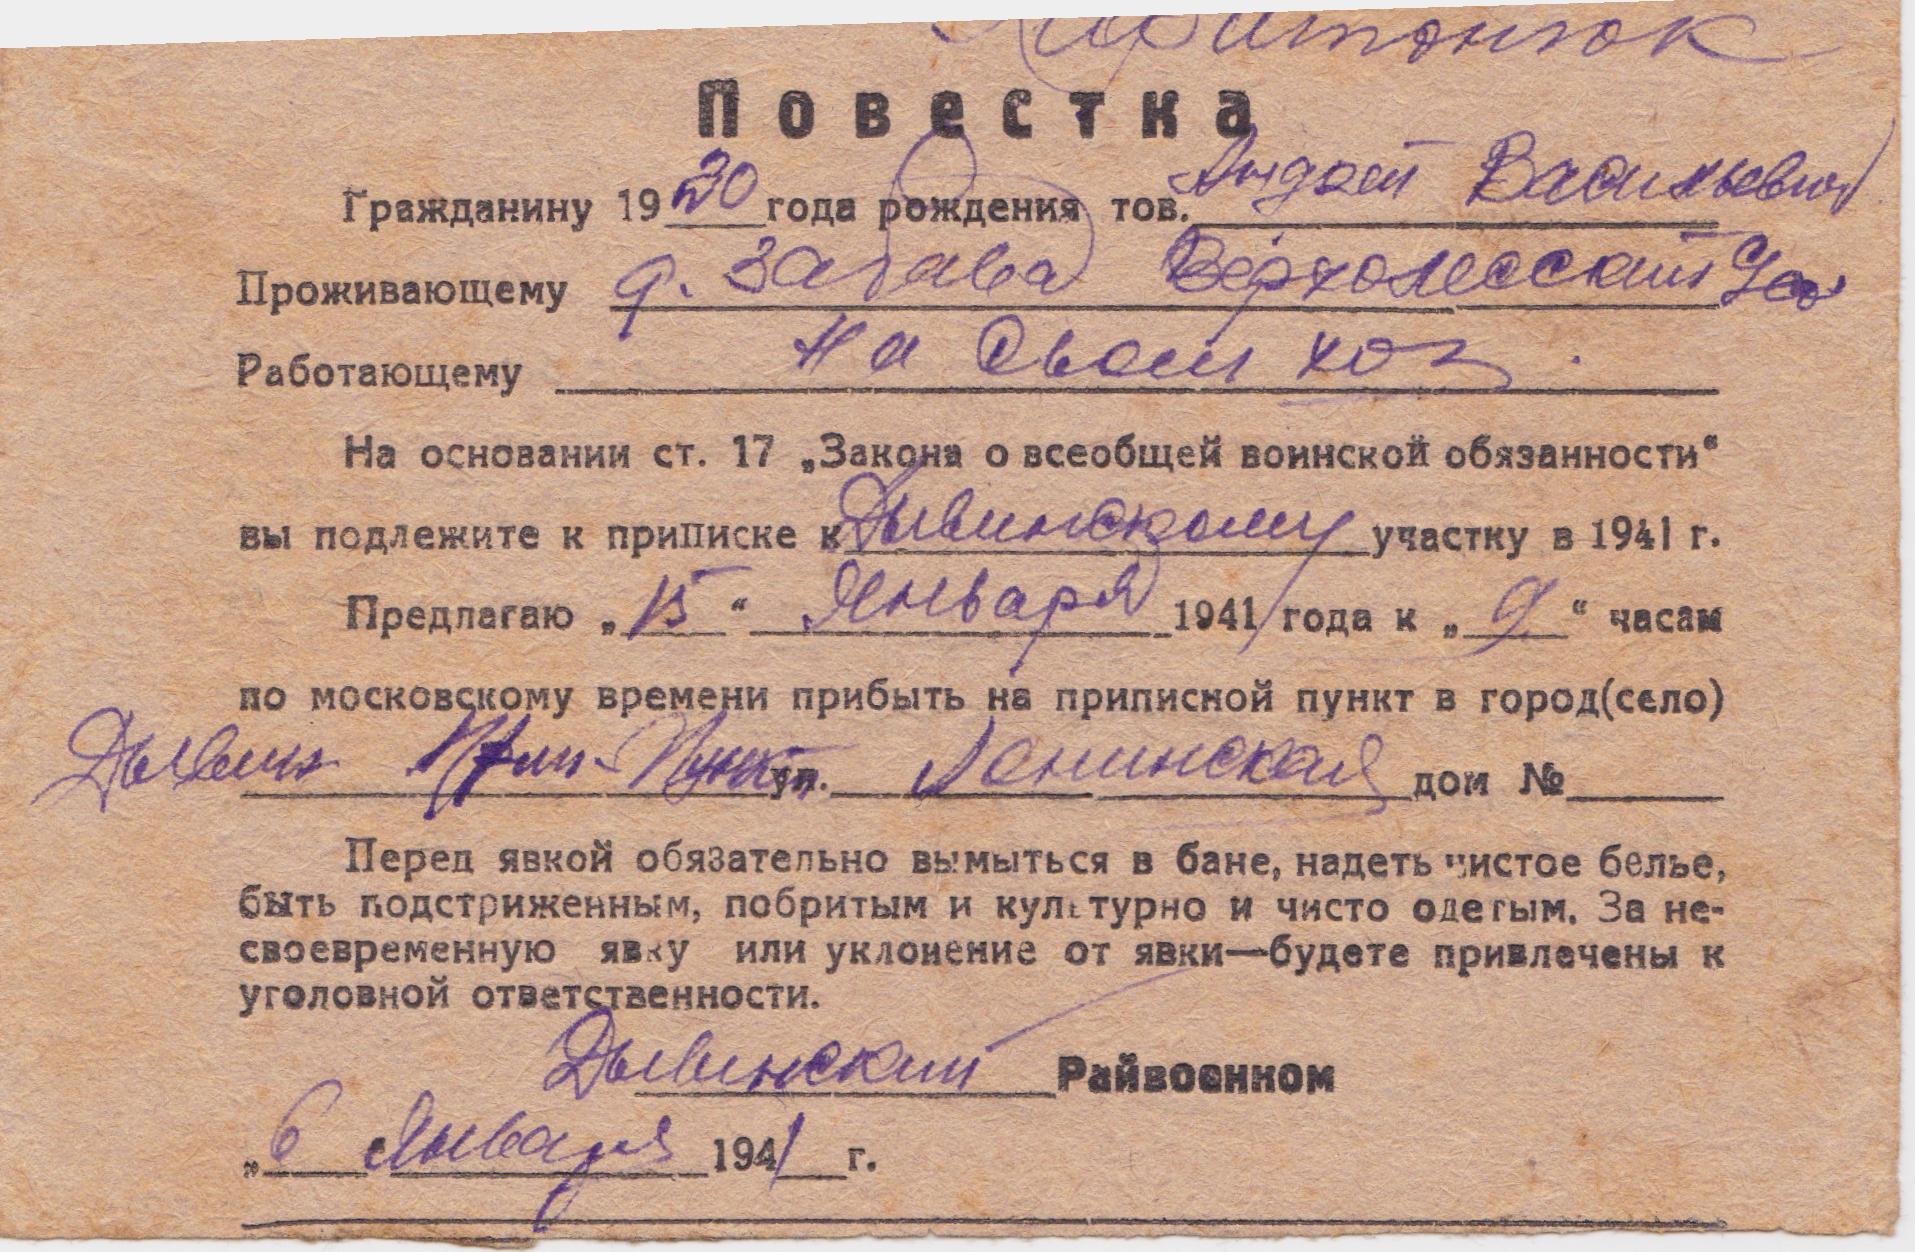 Харитонюк
Повестка
Гражданину 1920 года рождения тов. Андрей Васильевич
Проживающему д. Забава Верхолесский
Работающему на своем хоз.
На основании ст. 17 „Закона о всеобщей воинской обязанности“
вы подлежите к приписке к Дывинскому участку в 1941 г.
Предлагаю „15“ Января 1941 года к „9“ часам
по московскому времени прибыть на приписной пункт в город(село)
Дывин Прип-Пункт ул. Ленинская дом №
Перед явкой обязательно вымыться в бане, надеть чистое белье,
быть подстриженным, побритым и культурно и чисто одетым. За не-
своевременную явку или уклонение от явки—будете привлечены к
уголовной ответственности.
Дывинский Райвоенком
„6 Января 1941 г.